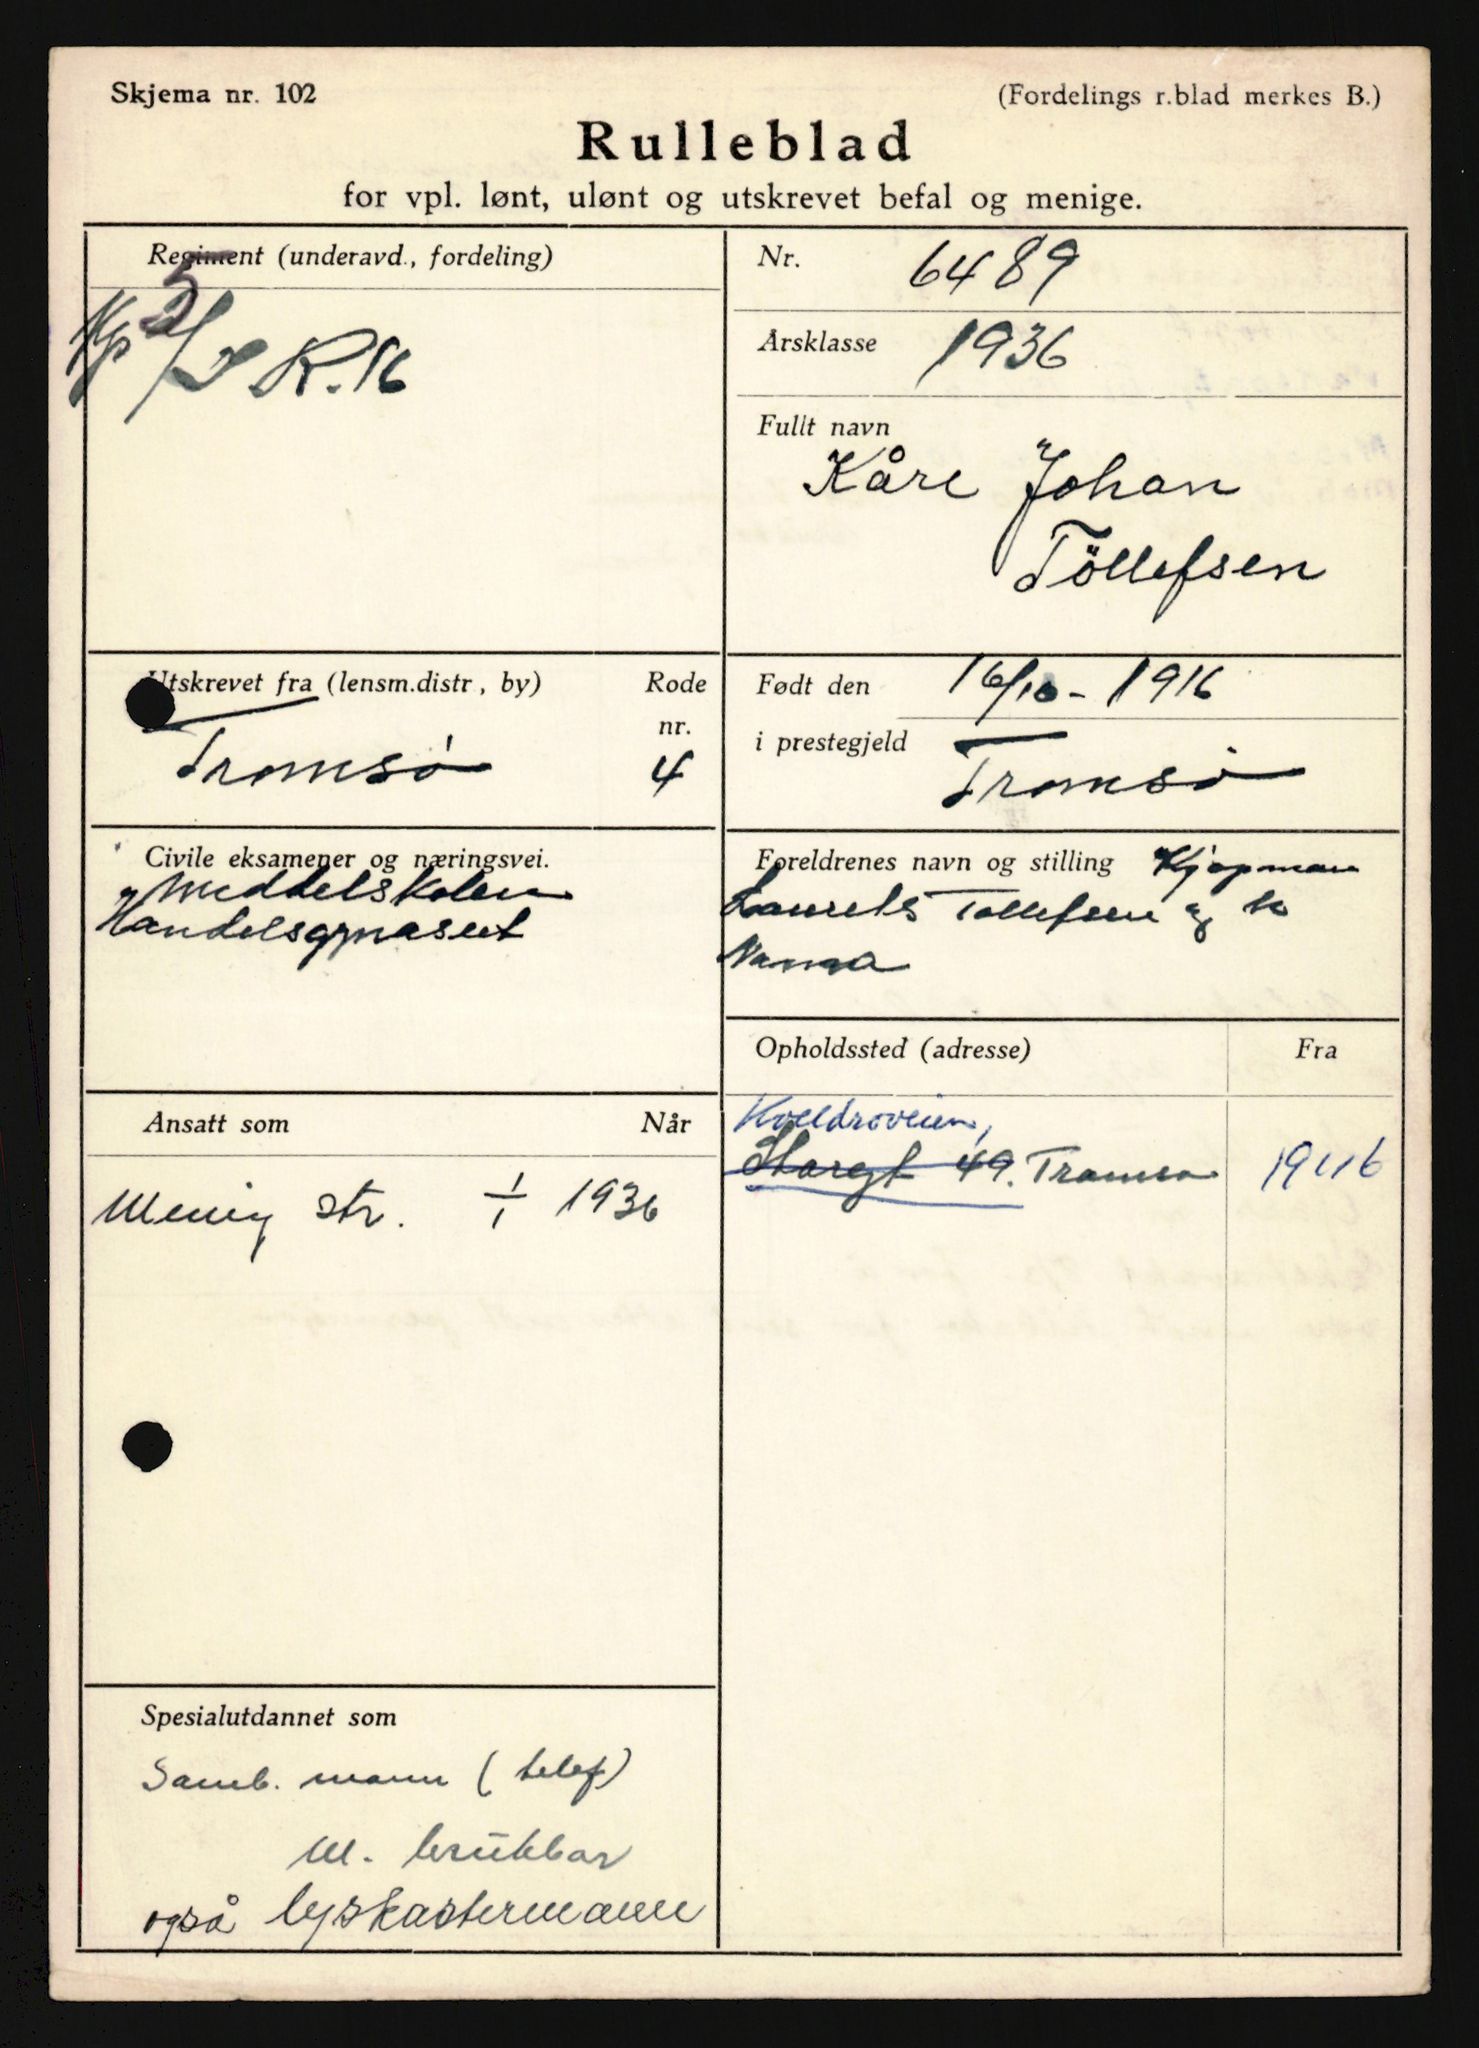 Skjema nr. 102
(Fordelings r.blad merkes B.)
Rulleblad
for vpl. lønt, ulønt og utskrevet befal og menige.
Regiment (underavd., fordeling)
R. 16
Nr. 6489
Årsklasse 1936
Fullt navn
Kåre Johan
Töllefsen
Utskrevet fra (lensm.distr, by)
Rode
nr.
Tromsø
4
Født den 16/10 - 1916
i prestegjeld Tromsø
Civile eksamener og næringsvei.
Middelskolen
Handelsgymaset
Foreldrenes navn og stilling Kjøpman
Laurits Tollefsen og h
Nanna
Opholdssted (adresse)
Fra
Storgt 49. Tromsø
1946
Ansatt som
Når
Menig str. 1/1 1936
Spesialutdannet som
Samb. mann (telef)
M. brukbar
også lyskastermann